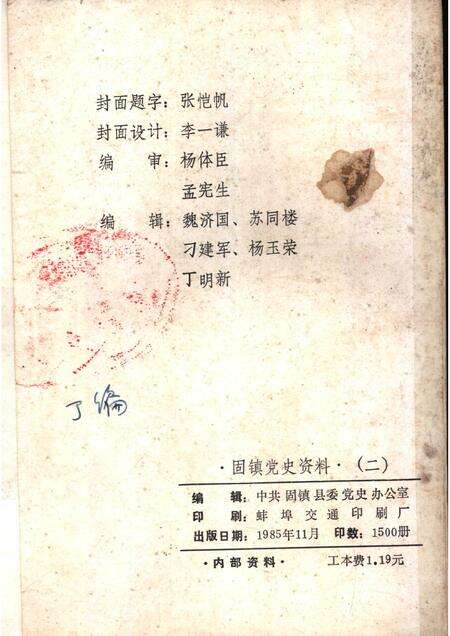 封面题字：张恺帆
封面设计：李一谦
编　审：杨体臣
孟宪生
编　辑：魏济国、苏同楼
刁建军、杨玉荣
丁明新
丁编
·固镇党史资料·（二）
编　辑：中共固镇县委党史办公室
印　刷：蚌埠交通印刷厂
出版日期：1985年11月　印数：1500册
·内部资料·　工本费1.19元